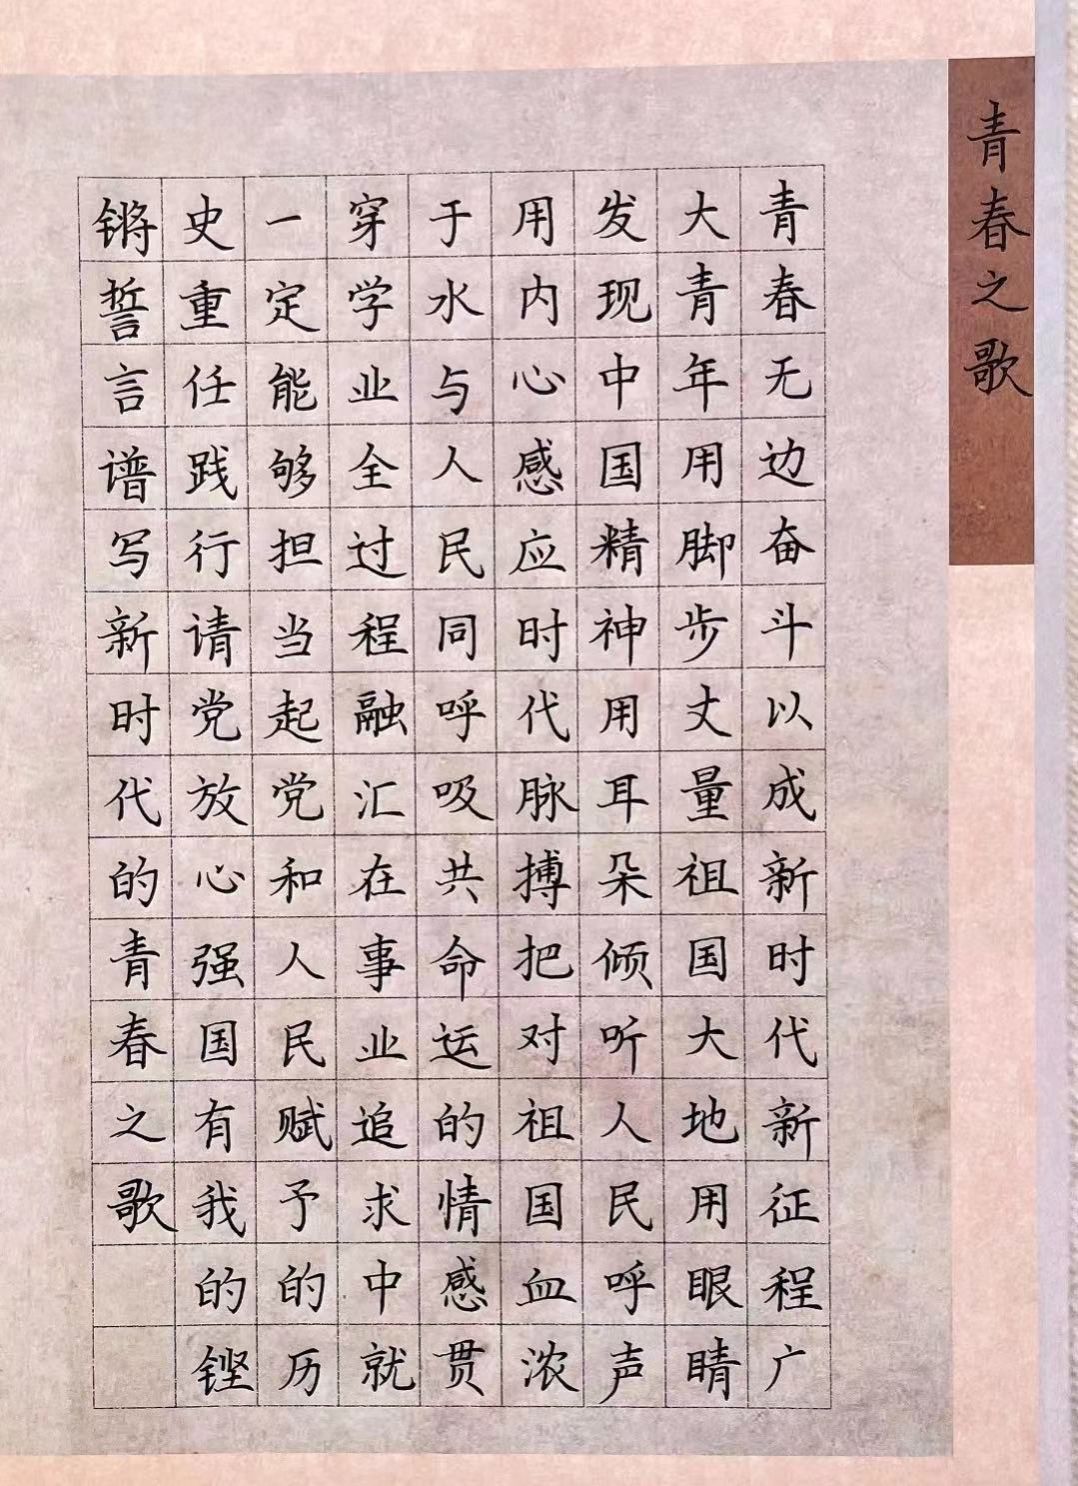 青春之歌
青春无边奋斗以成新时代新征程广
大青年用脚步丈量祖国大地用眼睛
发现中国精神用耳朵倾听人民呼声
用内心感应时代脉搏把对祖国血浓
于水与人民同呼吸共命运的情感贯
穿学业全过程融汇在事业追求中就
一定能够担当起党和人民赋予的历
史重任践行请党放心强国有我的铿
锵誓言谱写新时代的青春之歌